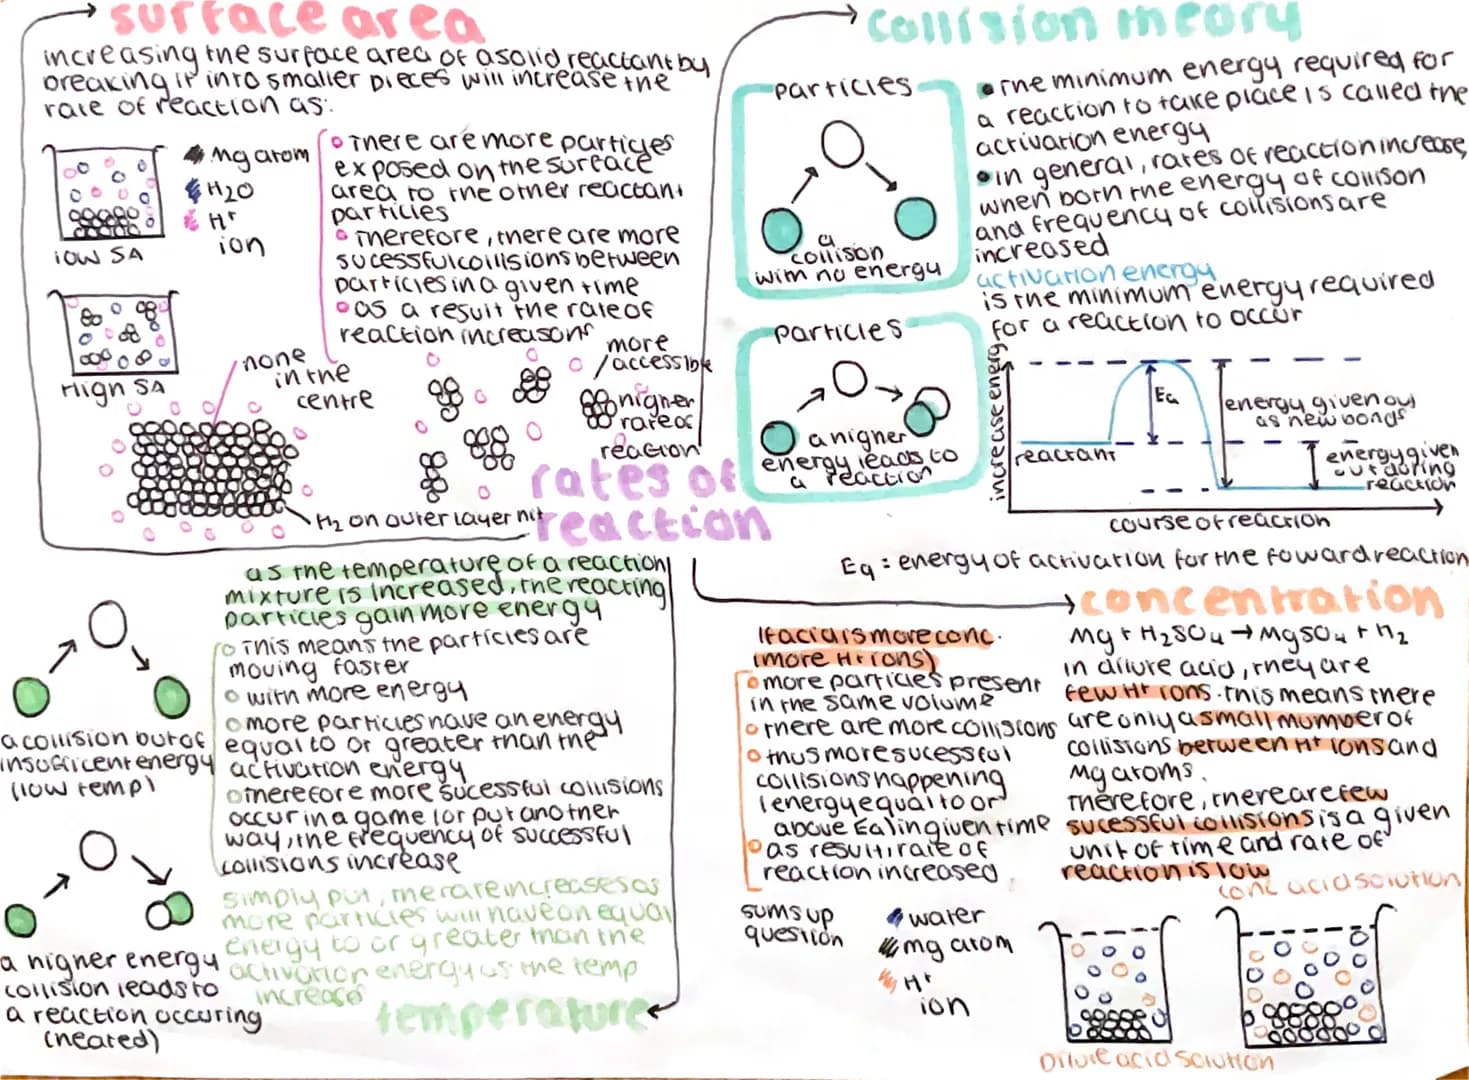 surface area
increasing the surface area of a solid reactant by
breaking it into smaller pieces will increase the
rate of reaction as:
Mg atom
H2O
H+
ion
low SA
High SA
• There are more particles
exposed on the surface
area to the other reactant
particles
• Therefore, there are more
sucessful collisions between
particles in a given time
• as a result the rate of
reaction increasons
none
in the
centre
more
accessible
higher
rate of
reaction
H2 on outer layer hit
rates of
reaction
collision theory
particles
a
collison
with no energy
particles
a higher
energy leads to
a reaction
• The minimum energy required for
a reaction to take place is called the
activation energy
• in general, rates of reaction increase,
when both the energy of collison
and frequency of collisions are
increased
activation energy
is the minimum energy required
for a reaction to occur
increase energy
Ea
reactant
energy given out
as new bonds
energy given
out during
reaction
course of reaction
Ea = energy of activation for the foward reaction
as the temperature of a reaction
mixture is increased, the reacting
particles gain more energy
• This means the particles are
moving faster
• with more energy
• more particles have an energy
equal to or greater than the
activation energy
• therefore more sucessful collisions
occur in a game (or put another
way, the frequency of successful
collisions increase
simply put, the rate increases as
more particles will have an equal
energy to or greater than the
activation energy as the temp
increases
temperature
a collision but of
insufficent energy
(low temp)
a higher energy
collision leads to
a reaction occuring
(heated)
concentration
If acid is more conc.
(more H+ ions)
• more particles present
in the same volume
• there are more collisions
• thus more sucessful
collisions happening
(energy equal to or
above Ea) in given time
• as result, rate of
reaction increased
Mg + H2SO4 → MgSO4 + H2
in dilute acid, they are
few H+ ions. this means there
are only a small mumber of
collisions between H+ ions and
Mg atoms.
Therefore, there are few
sucessful collisions is a given
unit of time and rate of
reaction is low
sums up
question
water
mg atom
H+
ion
conc acid solution
Dilute acid solution